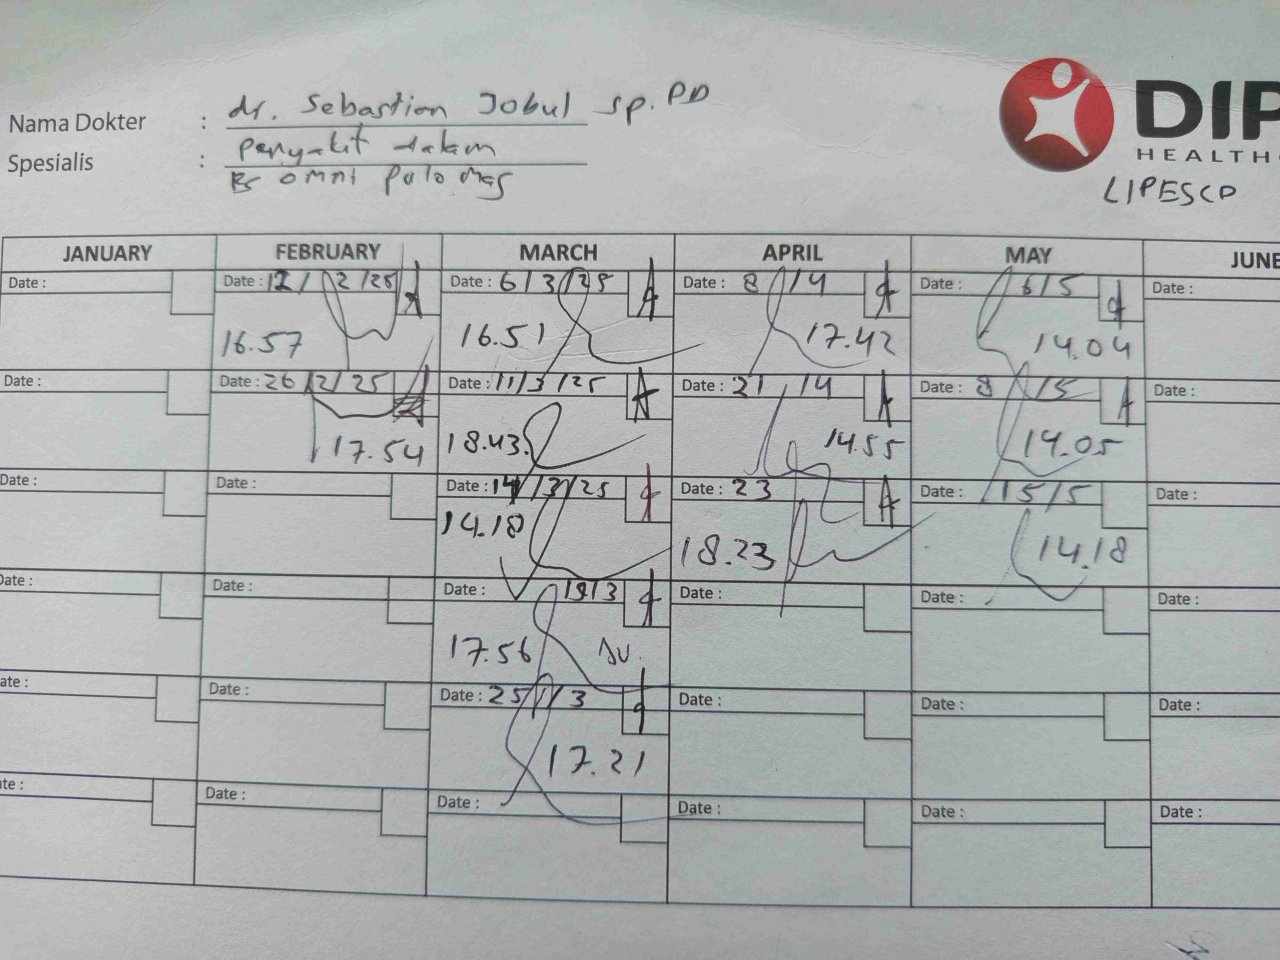 Nama Dokter : dr. Sebastian Jobul Sp.PD
Spesialis : Penyakit dalam
RS omni pulo mas
DIP
HEALTH
LIPESCO
JANUARY FEBRUARY MARCH APRIL MAY JUNE
Date : Date : 12/02/25 Date : 6/3/25 Date : 8/4 Date : 6/5 Date :
16.57 16.51 17.42 14.04
Date : Date : 26/2/25 Date : 11/3/25 Date : 21/4 Date : 8/5 Date :
17.54 18.43 14.55 14.05
Date : Date : Date : 14/3/25 Date : 23 Date : 15/5 Date :
14.18 18.23 14.18
Date : Date : Date : 19/3 Date : Date : Date :
17.56
ate : Date : Date : 25/3 Date : Date : Date :
17.21
te : Date : Date : Date : Date : Date :